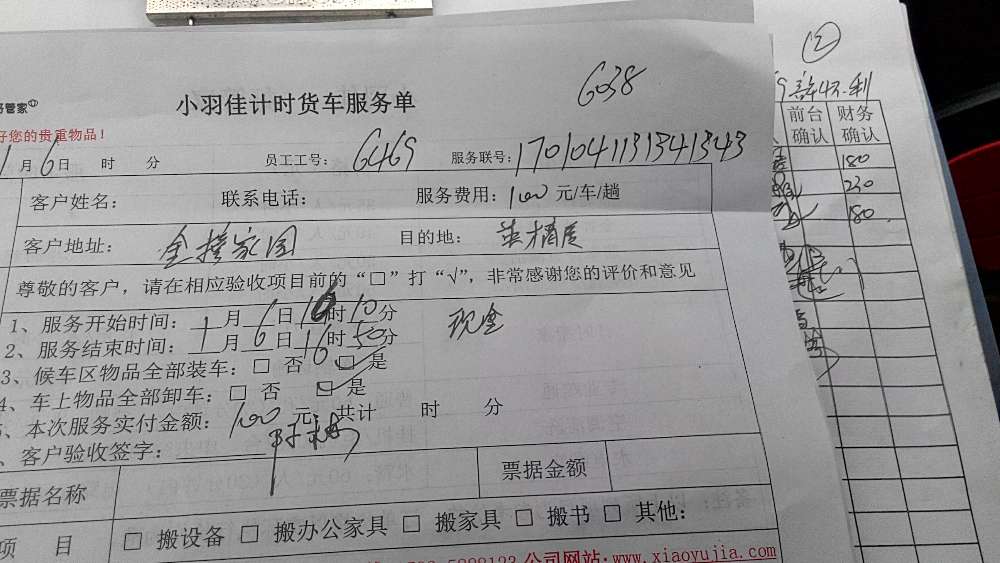 ②
6038
小羽佳计时货车服务单
管家
好您的贵重物品！
1月6日 时 分 员工工号：6469 服务联号：1701041131341343
客户姓名： 联系电话： 服务费用：100元/车/趟
客户地址： 家园 目的地：
尊敬的客户，请在相应验收项目前的“□”打“√”，非常感谢您的评价和意见
1、服务开始时间：1月6日16时10分 现金
2、服务结束时间：1月6日16时50分
3、候车区物品全部装车：□ 否 □ 是
4、车上物品全部卸车：□ 否 □ 是
、本次服务实付金额：100元 共计 时 分
、客户验收签字：
票据名称 票据金额
项 目 □ 搬设备 □ 搬办公家具 □ 搬家具 □ 搬书 □ 其他：
公司网站：www.xiaoyujia.com
前台确认 财务确认
180
230
180